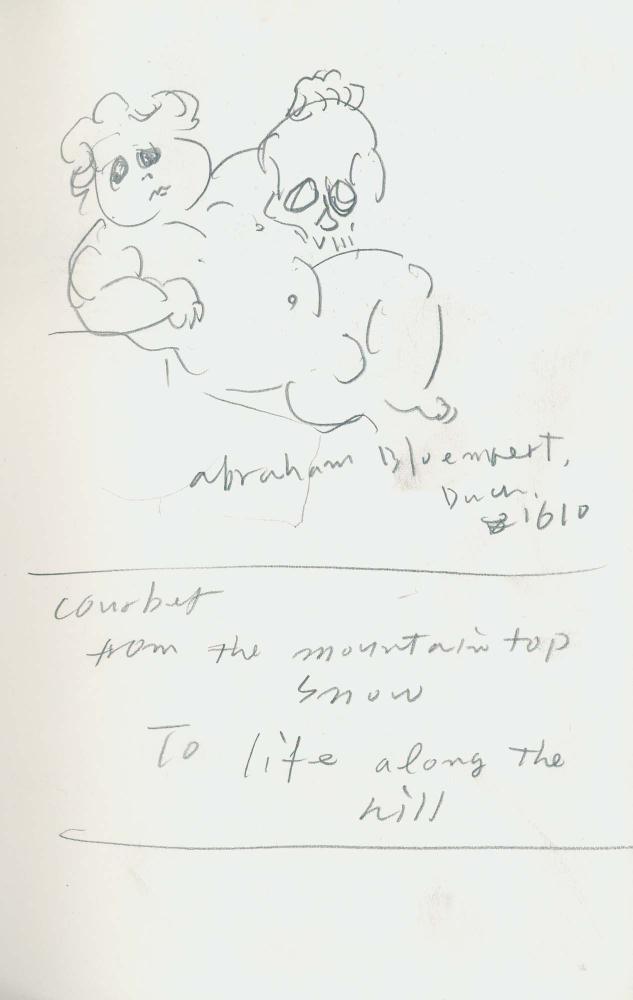 abraham Bloemaert,
Duch.
1610
courbet
from the mountain top
snow
To life along the
hill